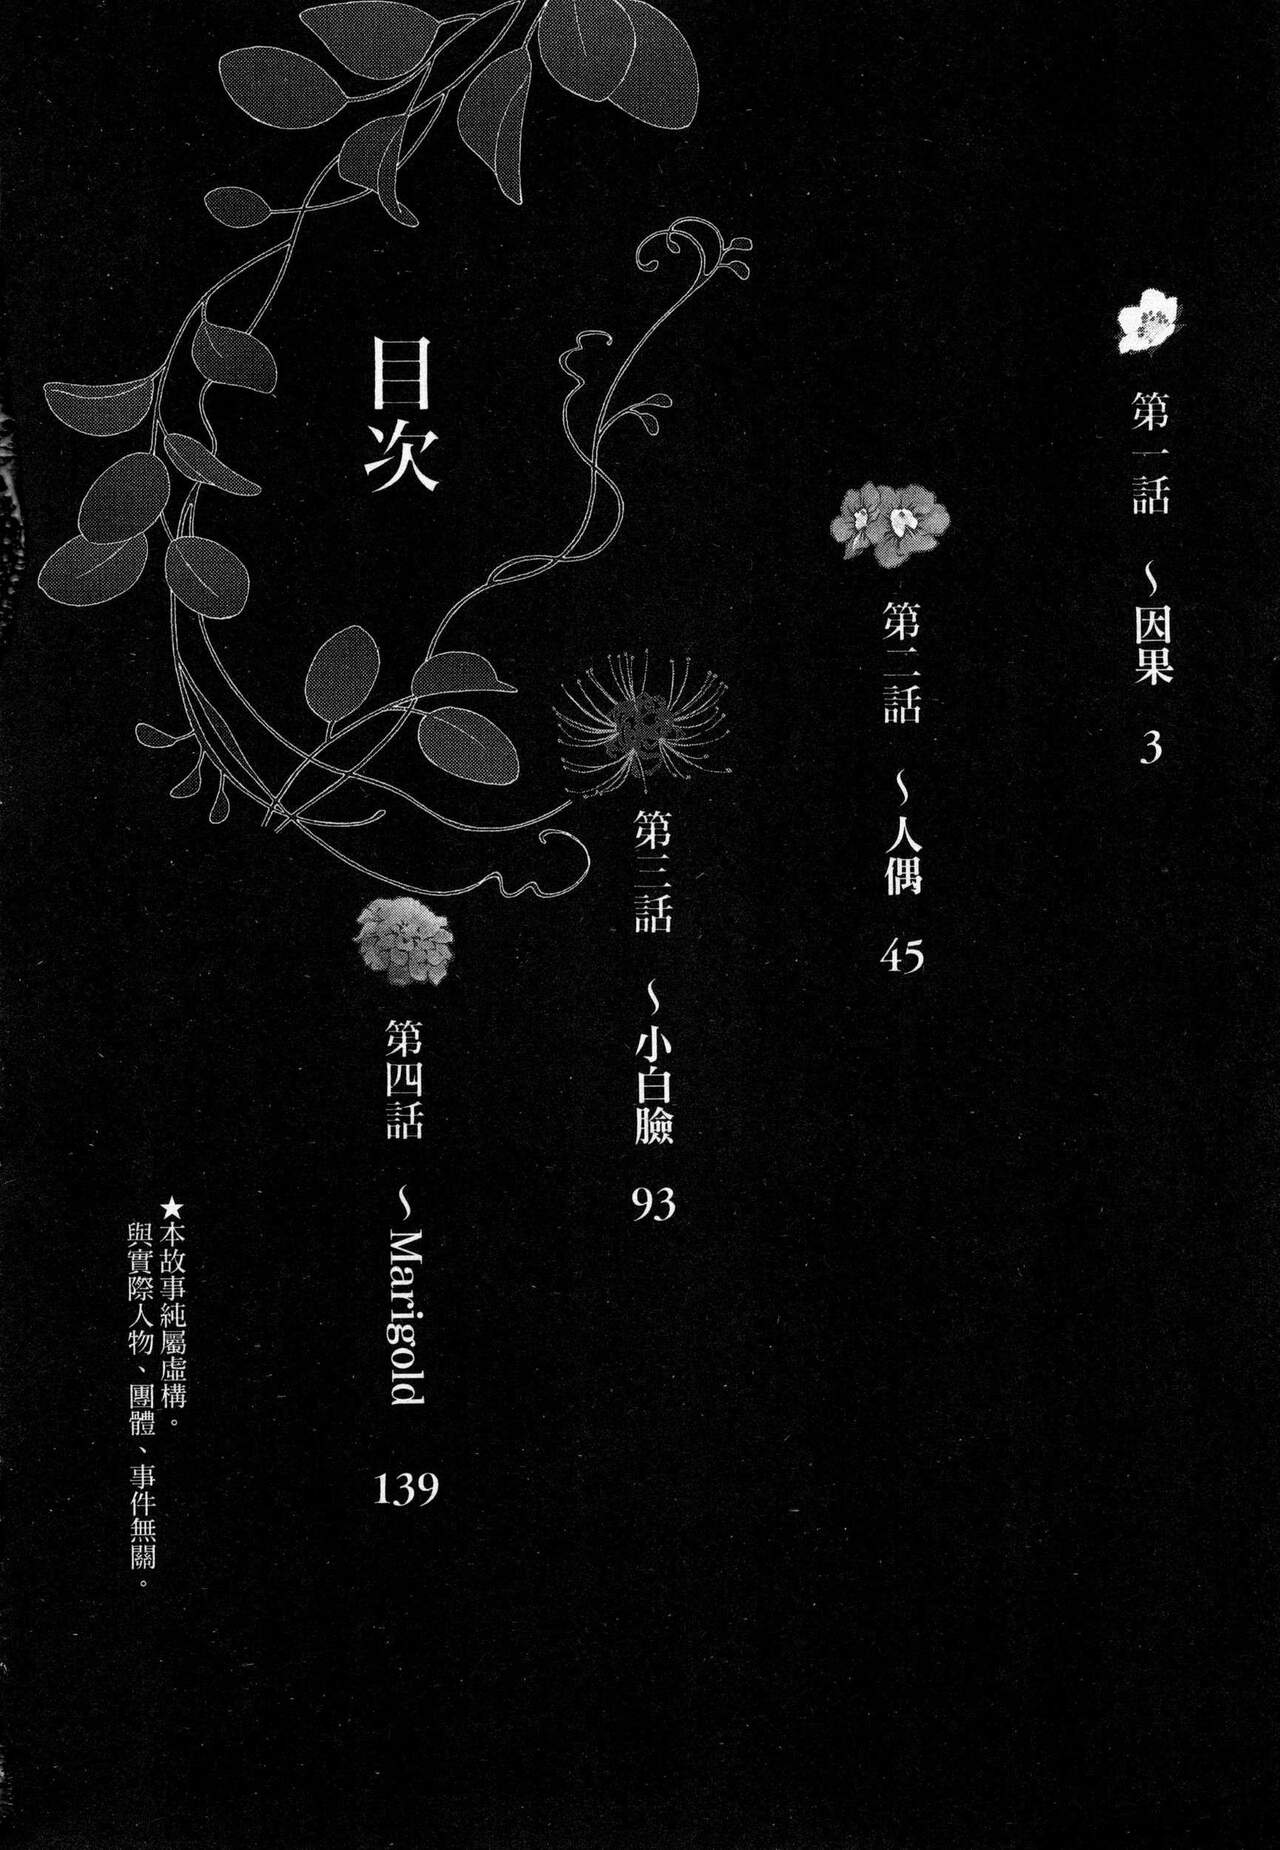 目次
第一話 ～因果 3
第二話 ～人偶 45
第三話 ～小白臉 93
第四話 ～Marigold 139
★本故事純屬虛構。
與實際人物、團體、事件無關。